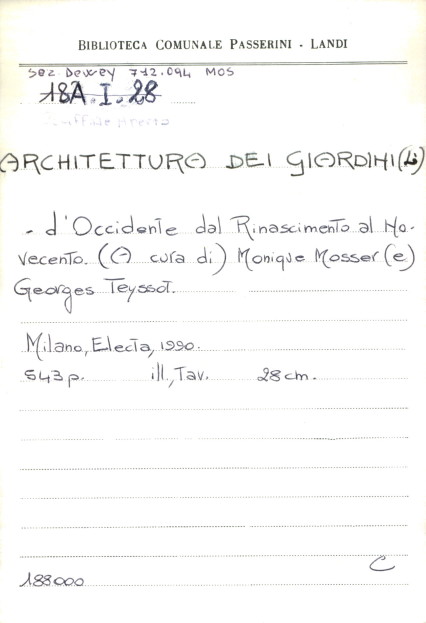 BIBLIOTECA COMUNALE PASSERINI - LANDI
sez. Dewey 712.094 MOS
18A.I.28
Scaffale Aperto
ARCHITETTURA DEI GIARDINI (L')
- d'Occidente dal Rinascimento al No-
vecento. (A cura di) Monique Mosser (e)
Georges Teyssot.
Milano, Electa, 1990.
543 p. ill., Tav. 28 cm.
C
188000